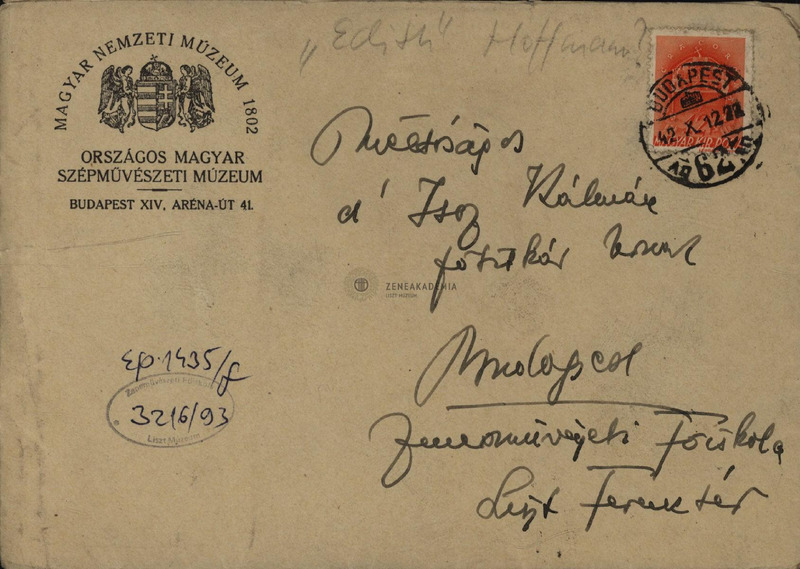 "Edith" Hoffmann?
MAGYAR NEMZETI MÚZEUM 1802
ORSZÁGOS MAGYAR
SZÉPMŰVÉSZETI MÚZEUM
BUDAPEST XIV, ARÉNA-ÚT 41.
BUDAPEST
42 X. 12
62
MAGYAR KIR. POSTA
Méltóságos
d' Isoz Kálmán
főtitkár úrnak
ZENEAKADÉMIA
LISZT MÚZEUM
Budapest
Zeneművészeti Főiskola
Liszt Ferenc tér
ep. 1435/g
3216/93
Liszt Múzeum